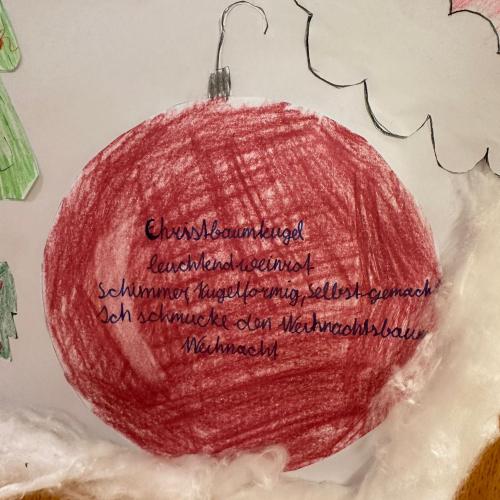 Christbaumkugel
leuchtend weinrot
Schimmer, kugelförmig, selbst-gemacht
Ich schmücke den Weihnachtsbaum
Weihnacht